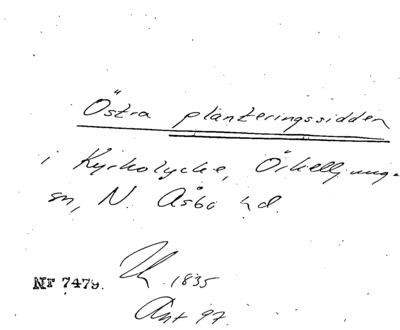 Östra planteringssidden
i Kyrkolycke, Örkelljunga
sn, N. Åsbo hd.
1835
NF 7479.
Ant 97